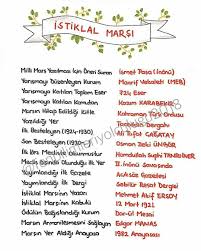 İSTİKLAL MARŞI
Milli Marş Yazılması İçin Öneri Sunan İsmet Paşa (İnönü)
Yarışmayı Düzenleyen Kurum Maarif Vekaleti (MEB)
Yarışmaya Katılan Toplam Eser 724 Eser
Yarışmaya Katılan Komutan Kazım KARABEKİR
Marşın Hitap Edildiği Kitle Kahraman Türk Ordusu
Yazıldığı Yer Taceddin Dergahı
İlk Besteleyen (1924-1930) Ali Rıfat ÇAĞATAY
Son Besteleyen (1930- Osman Zeki ÜNGÖR
İlk Kez Mecliste Okunmuştur Hamdullah Suphi TANRIÖVER
Meclis Başında Olunduğu İlk Yer II. İnönü Savaşında
Yayımlandığı İlk Gazete Açıksöz Gazetesi
Yayımlandığı İlk Dergi Sebilür Reşat Dergisi
İstiklal Marşı'nın Yazarı Mehmet Akif ERSOY
İstiklal Marşı'nın Kabulü 12 Mart 1921
Ödülün Bağışlandığı Kurum Darül Mesai
Marşın Armonilemesini Sağlayan Edgar MANAS
Marşın Yer Aldığı Anayasa 1982 Anayasası